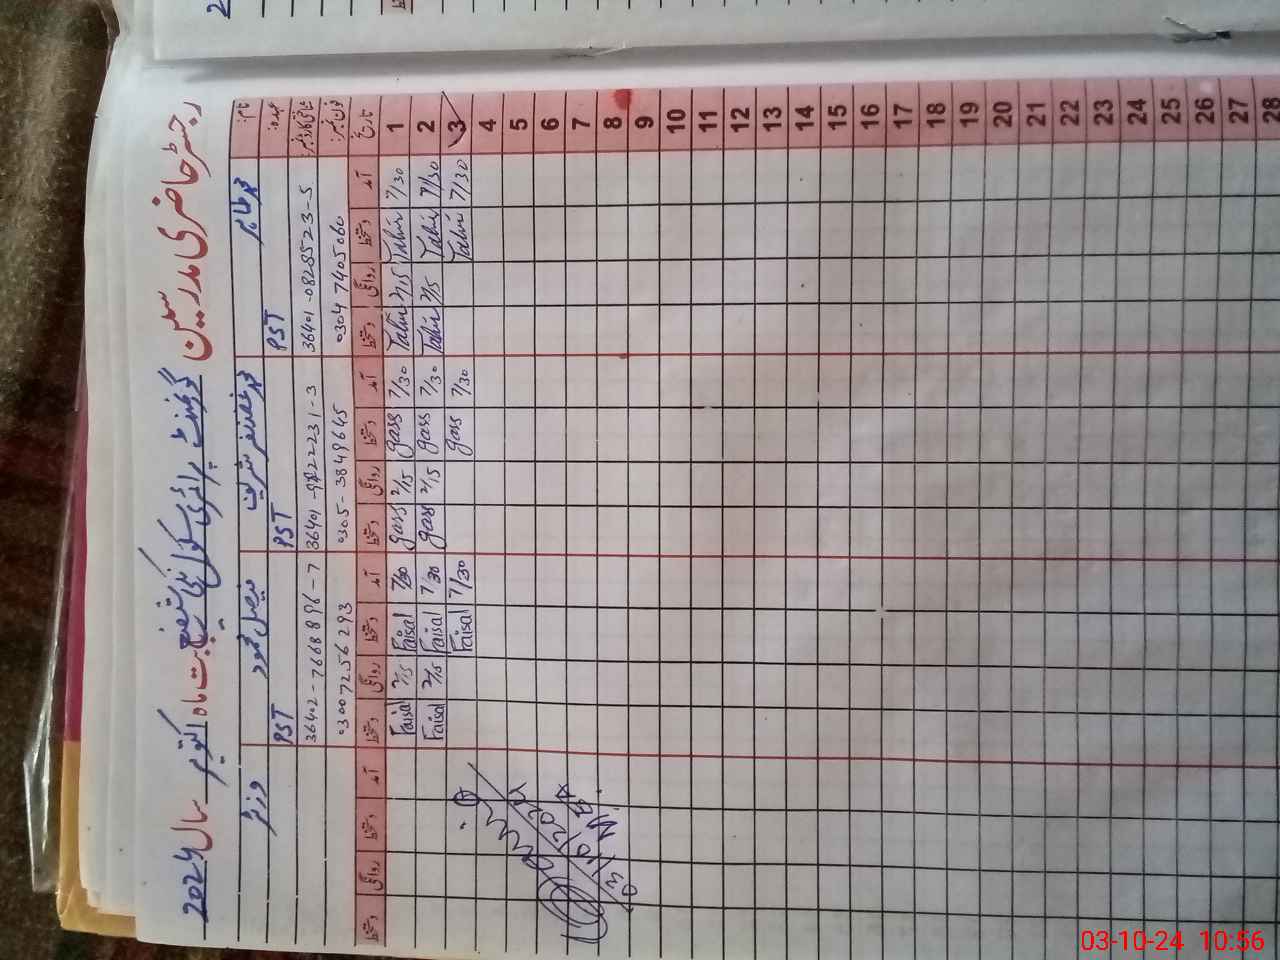 رجسٹر حاضری مدرسین گورنمنٹ پرائمری سکول بابت ماہ اکتوبر سال 2024
نام: محمد طاہر محمد غضنفر شریف فیصل محمود وزٹر
عہدہ: PST PST PST
شناختی کارڈ نمبر: 36401-0828523-5 36401- 222231-3 36402-7668896-7
فون نمبر: 0304 7405060 0305-3849645 03007256293
تاریخ آمد دستخط روانگی دستخط آمد دستخط روانگی دستخط آمد دستخط روانگی دستخط آمد دستخط روانگی دستخط
1 7/30 Tahir 2/15 Tahir 7/30 gass 2/15 gass 7/30 Faisal 2/15 Faisal
2 7/30 Tahir 2/15 Tahir 7/30 gass 2/15 gass 7/30 Faisal 2/15 Faisal
3 7/30 Tahir 7/30 gass 7/30 Faisal
4
5
6
7
8
9
10
11
12
13
14
15
16
17
18
19
20
21
22
23
24
25
26
27
28
03-10-24 10:56